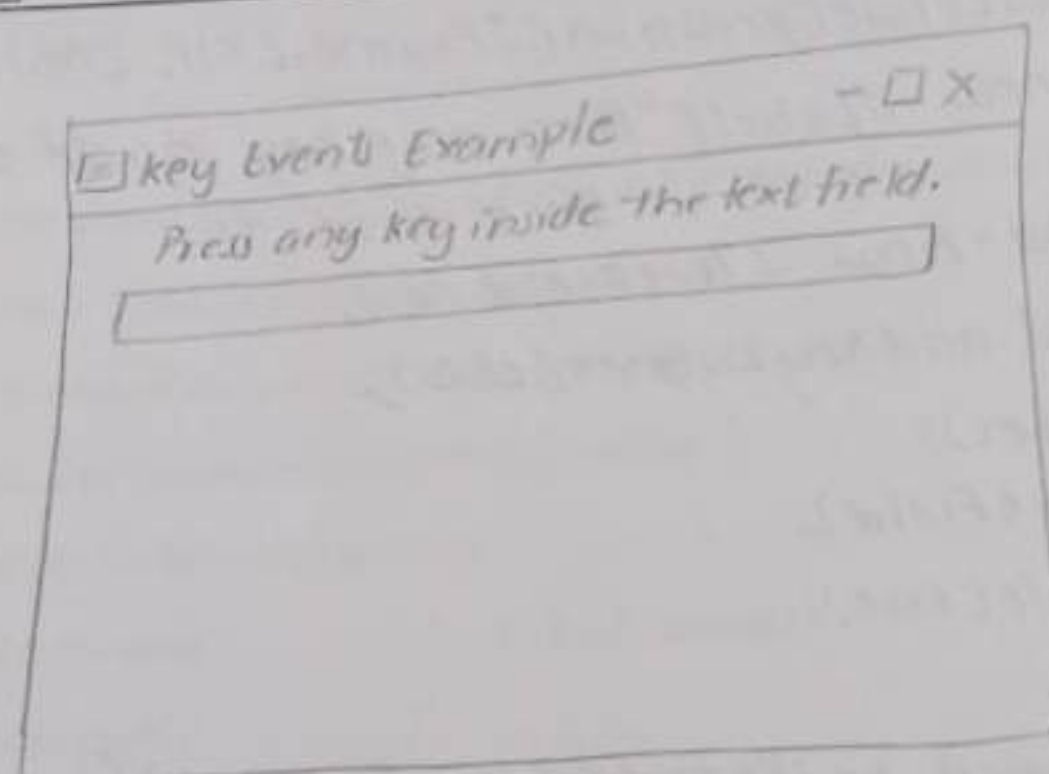 key Events Example - □ X
Press any key inside the text field.